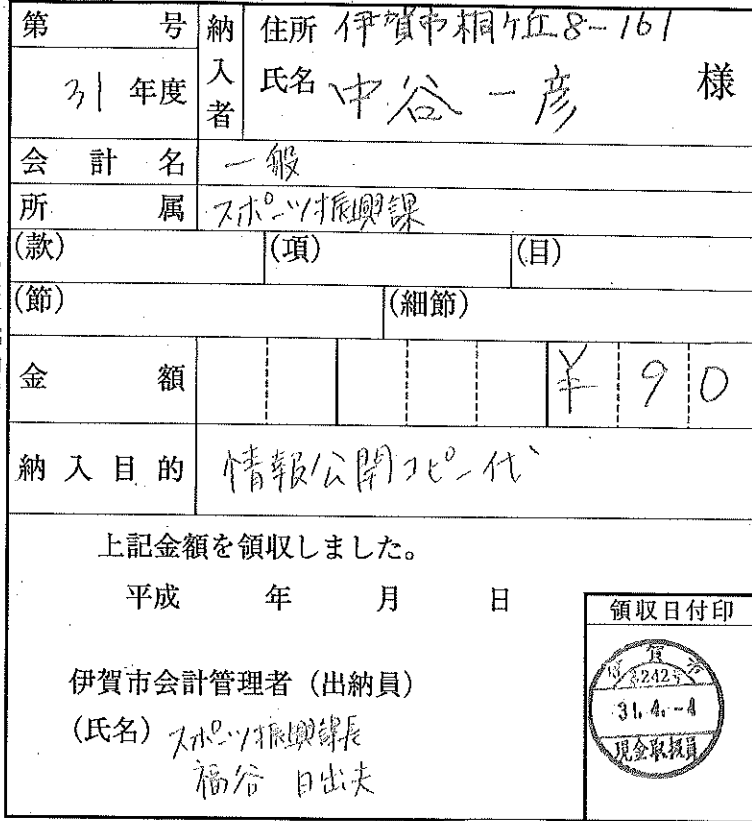 第 号
31 年度
納入者
住所 伊賀市桐ケ丘8-161
氏名 中谷 一彦 様
会計名 一般
所属 スポーツ振興課
(款) (項) (目)
(節) (細節)
金額 ¥90
納入目的 情報公開コピー代
上記金額を領収しました。
平成 年 月 日
領収日付印
伊賀市会計管理者(出納員)
(氏名) スポーツ振興課長
福谷 日出夫
伊賀市
31.4.-4
現金取扱員